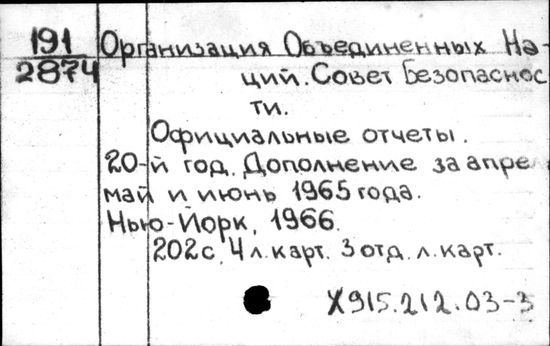 191
2874
Организация Объединенных На-
ций. Совет Безопаснос
ти.
Официальные отчеты.
20-й год. Дополнение за апре
май и июнь 1965 года.
Нью-Йорк, 1966.
202с, 4 л. карт. 3 отд. л. карт.
X915.212.03-3